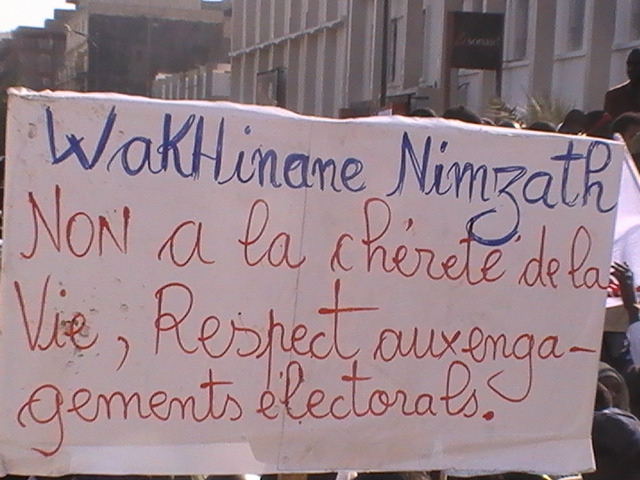 WaKHinane Nimzath
NON a la chéreté de la
Vie, Respect aux enga-
gements électorals.